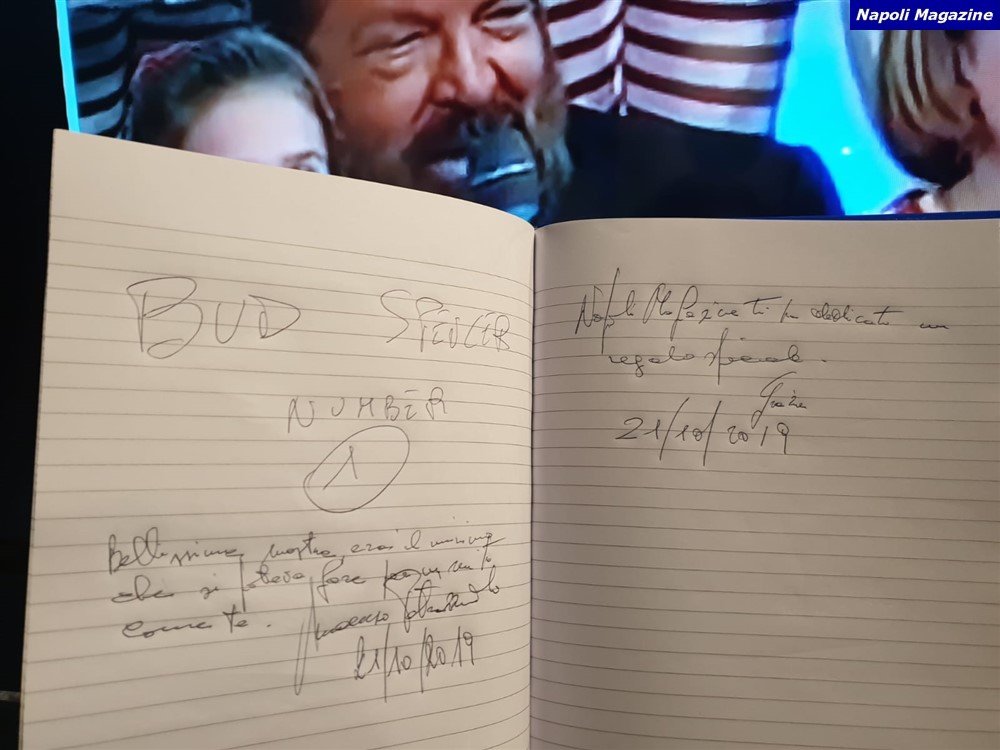 Napoli Magazine
BUD SPENCER
NUMBER
1
Bellissima mostra, era il minimo
che si poteva fare per un mito
come te.
21/10/2019
Napoli Magazine ti ha dedicato un
regalo speciale.
Grazie
21/10/2019